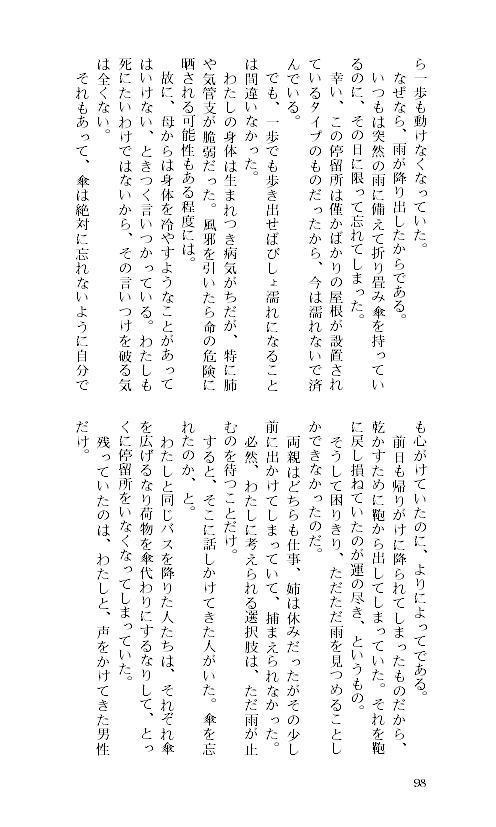 ら一歩も動けなくなっていた。
なぜなら、雨が降り出したからである。
いつもは突然の雨に備えて折り畳み傘を持ってい
るのに、その日に限って忘れてしまった。
幸い、この停留所は僅かばかりの屋根が設置され
ているタイプのものだったから、今は濡れないで済
んでいる。
でも、一歩でも歩き出せばびしょ濡れになること
は間違いなかった。
わたしの身体は生まれつき病気がちだが、特に肺
や気管支が脆弱だった。風邪を引いたら命の危険に
晒される可能性もある程度には。
故に、母からは身体を冷やすようなことがあって
はいけない、ときつく言いつかっている。わたしも
死にたいわけではないから、その言いつけを破る気
は全くない。
それもあって、傘は絶対に忘れないように自分で
も心がけていたのに、よりによってである。
前日も帰りがけに降られてしまったものだから、
乾かすために鞄から出してしまっていた。それを鞄
に戻し損ねていたのが運の尽き、というもの。
そうして困りきり、ただただ雨を見つめることし
かできなかったのだ。
両親はどちらも仕事、姉は休みだったがその少し
前に出かけてしまっていて、捕まえられなかった。
必然、わたしに考えられる選択肢は、ただ雨が止
むのを待つことだけ。
すると、そこに話しかけてきた人がいた。傘を忘
れたのか、と。
わたしと同じバスを降りた人たちは、それぞれ傘
を広げるなり荷物を傘代わりにするなりして、とっ
くに停留所をいなくなってしまっていた。
残っていたのは、わたしと、声をかけてきた男性
だけ。
98